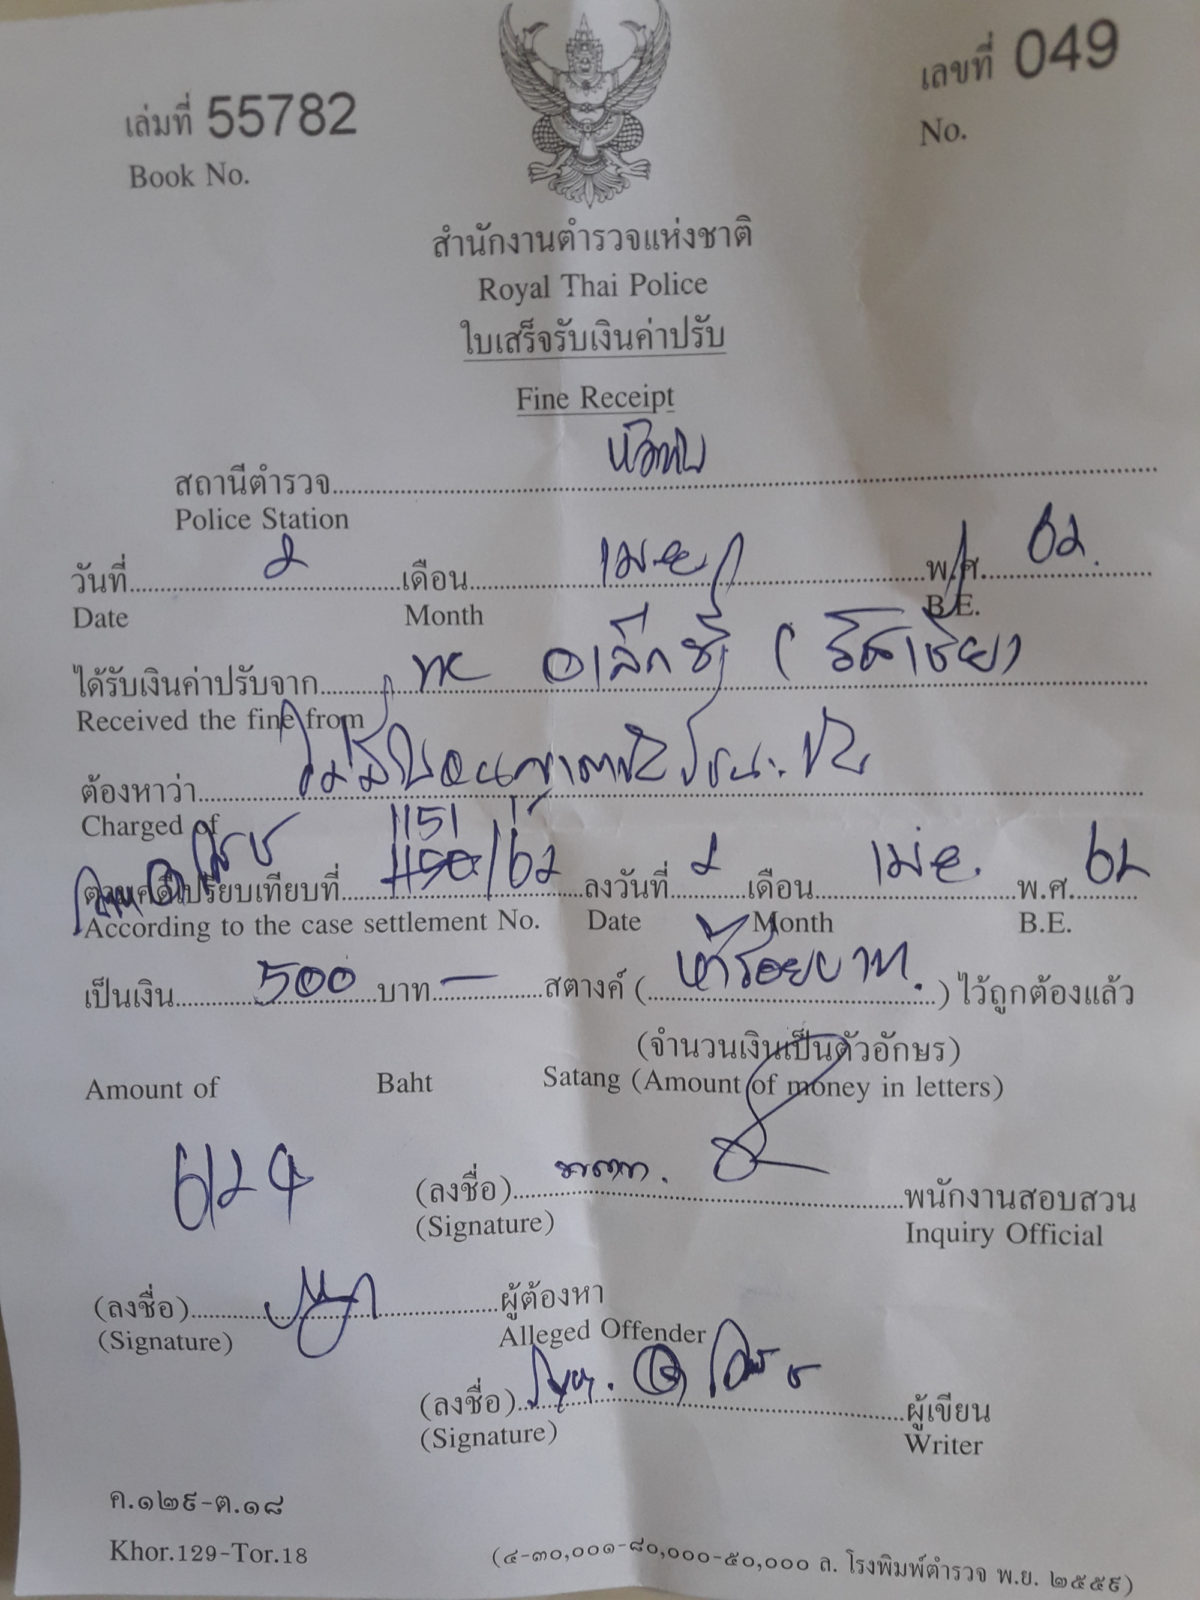 เล่มที่ 55782
Book No.
เลขที่ 049
No.
สำนักงานตำรวจแห่งชาติ
Royal Thai Police
ใบเสร็จรับเงินค่าปรับ
Fine Receipt
สถานีตำรวจ
Police Station
วันที่ 2 เดือน เมย พ.ศ. 62.
Date Month B.E.
ได้รับเงินค่าปรับจาก อเล็กซี่ (รัสเซีย)
Received the fine from
ต้องหาว่า ไม่มีใบอนุญาตขับ
Charged of
1151
ตามคดีเปรียบเทียบที่ 1150/62 ลงวันที่ 2 เดือน เมย. พ.ศ. 62
According to the case settlement No. Date Month B.E.
เป็นเงิน 500 บาท — สตางค์ (ห้าร้อยบาท.) ไว้ถูกต้องแล้ว
(จำนวนเงินเป็นตัวอักษร)
Amount of Baht Satang (Amount of money in letters)
(ลงชื่อ) พนักงานสอบสวน
(Signature) Inquiry Official
(ลงชื่อ) ผู้ต้องหา
(Signature) Alleged Offender
(ลงชื่อ) ผู้เขียน
(Signature) Writer
ค.๑๒๙-ต.๑๘
Khor.129-Tor.18
(๔-๓๐,๐๐๑-๘๐,๐๐๐-๕๐,๐๐๐ ล. โรงพิมพ์ตำรวจ พ.ย. ๒๕๕๙)